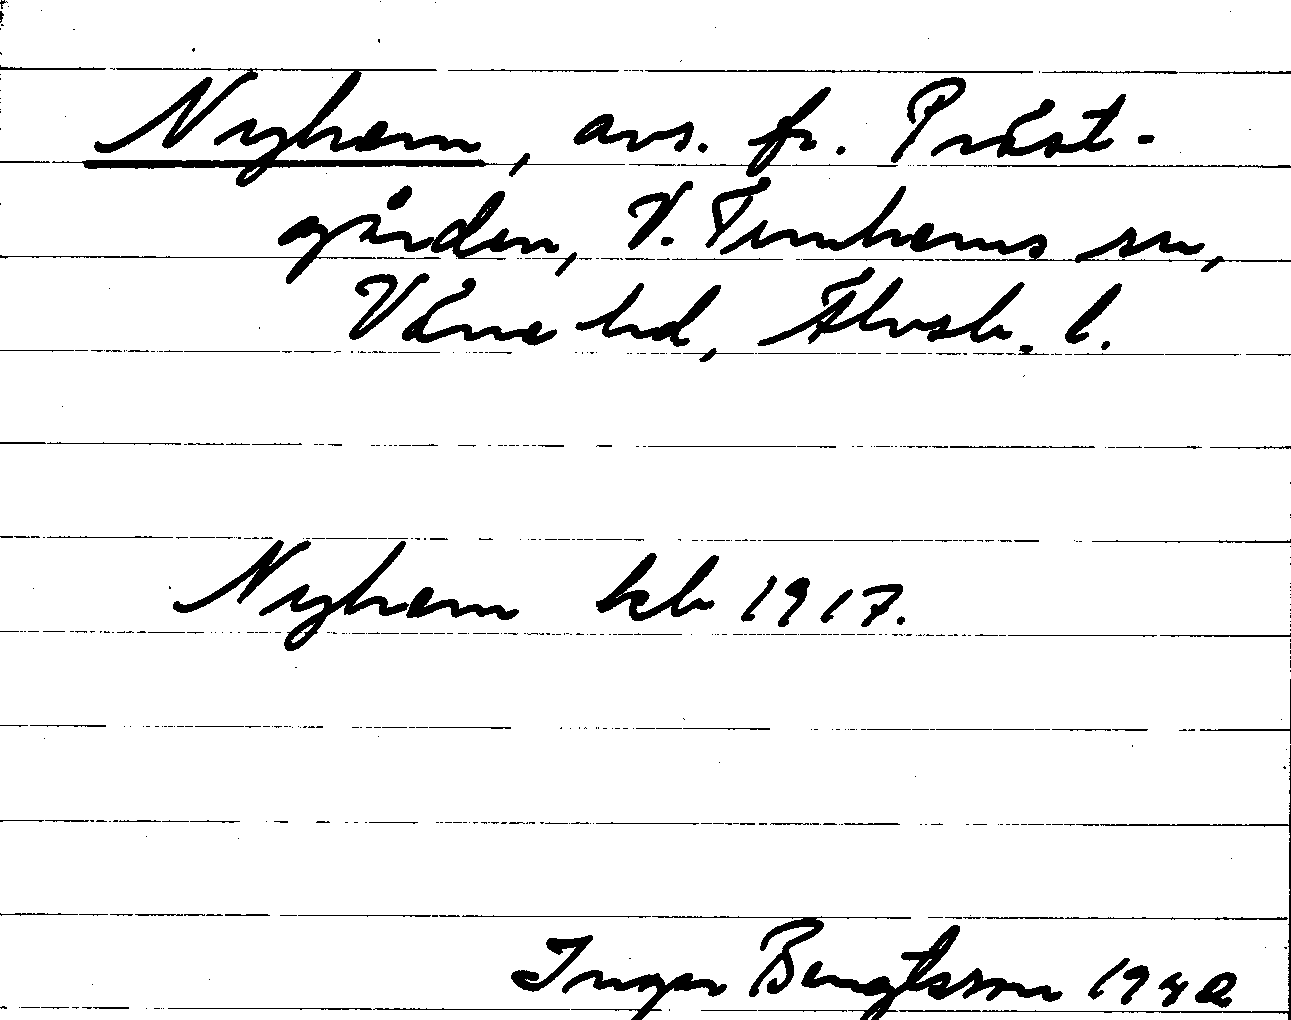 Nyhem, avs. fr. Präst-
gården, V. Tunhems sn,
Väne hd, Älvsb. l.
Nyhem kb 1917.
Ingar Bengtsson